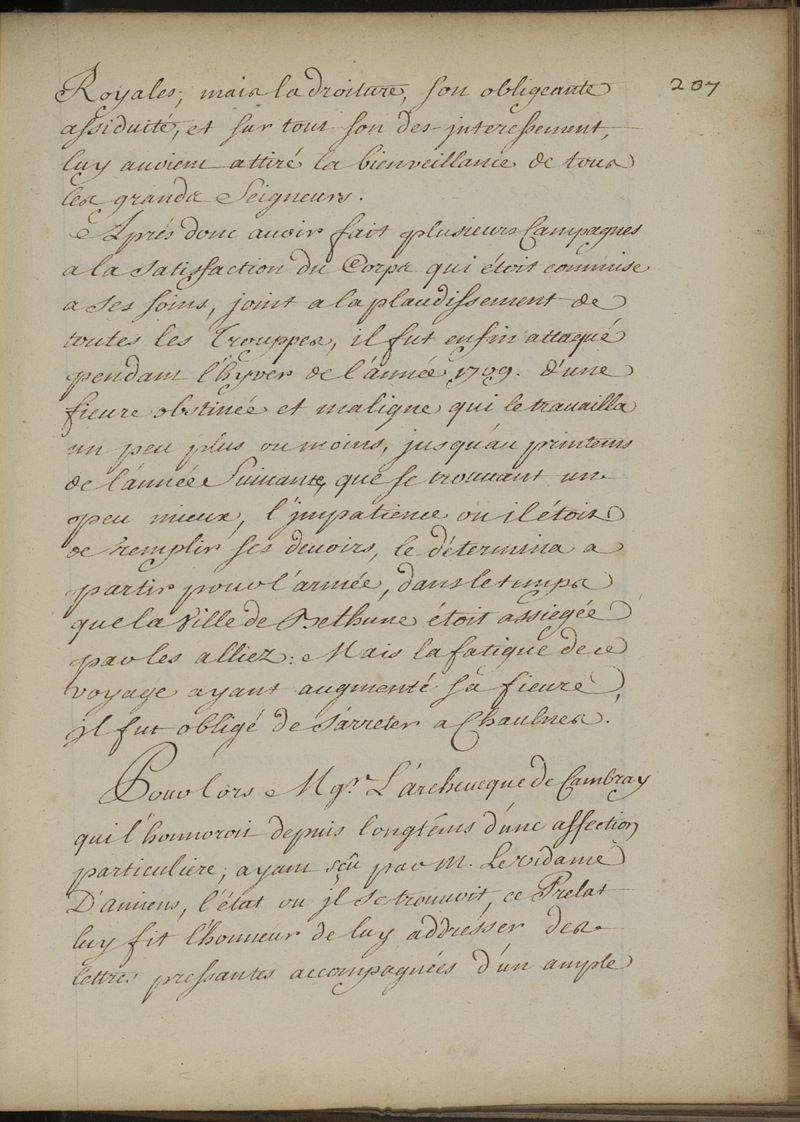 207
Royales; mais la droiture, son obligeante
assiduité, et sur tout son des-jnteressement,
luy auvient attiré la bienveillance de tous
les grands Seigneurs.
Aprés donc auoir fait plusieurs Campagnes
a la satisfaction du Corps qui étoit commise
a ses soins, joint a la plaudissement de
toutes les Trouppes, il fut enfin attaqué
pendant l'hyver de l'année 1709. d'une
fieure obstinée et maligne qui le trauailla
un peu plus ou moins, jusqu'au printems
de l'année Suiuante, que se trouuant un
peu mieux, l'jmpatience ou il étoit
de remplir ses deuoirs, le détermina a
partir pour l'armée, dans le temps
que la Ville de Bethune étoit assiegée
par les alliez: Mais la fatigue de ce
voyage ayant augmenté sa fieure,
jl fut obligé de s'arreter a Chaulnes.
Pour lors Mgr. L'archeueque de Cambray
qui l'honnoroit depuis longtéms d'une affection
particuliere, ayant sçû par M. Le vidame
D'amiens, l'état ou jl se trouuoit, ce Prelat
luy fit l'honneur de luy addrésser des
lettres pressantes accompagnées d'un ample